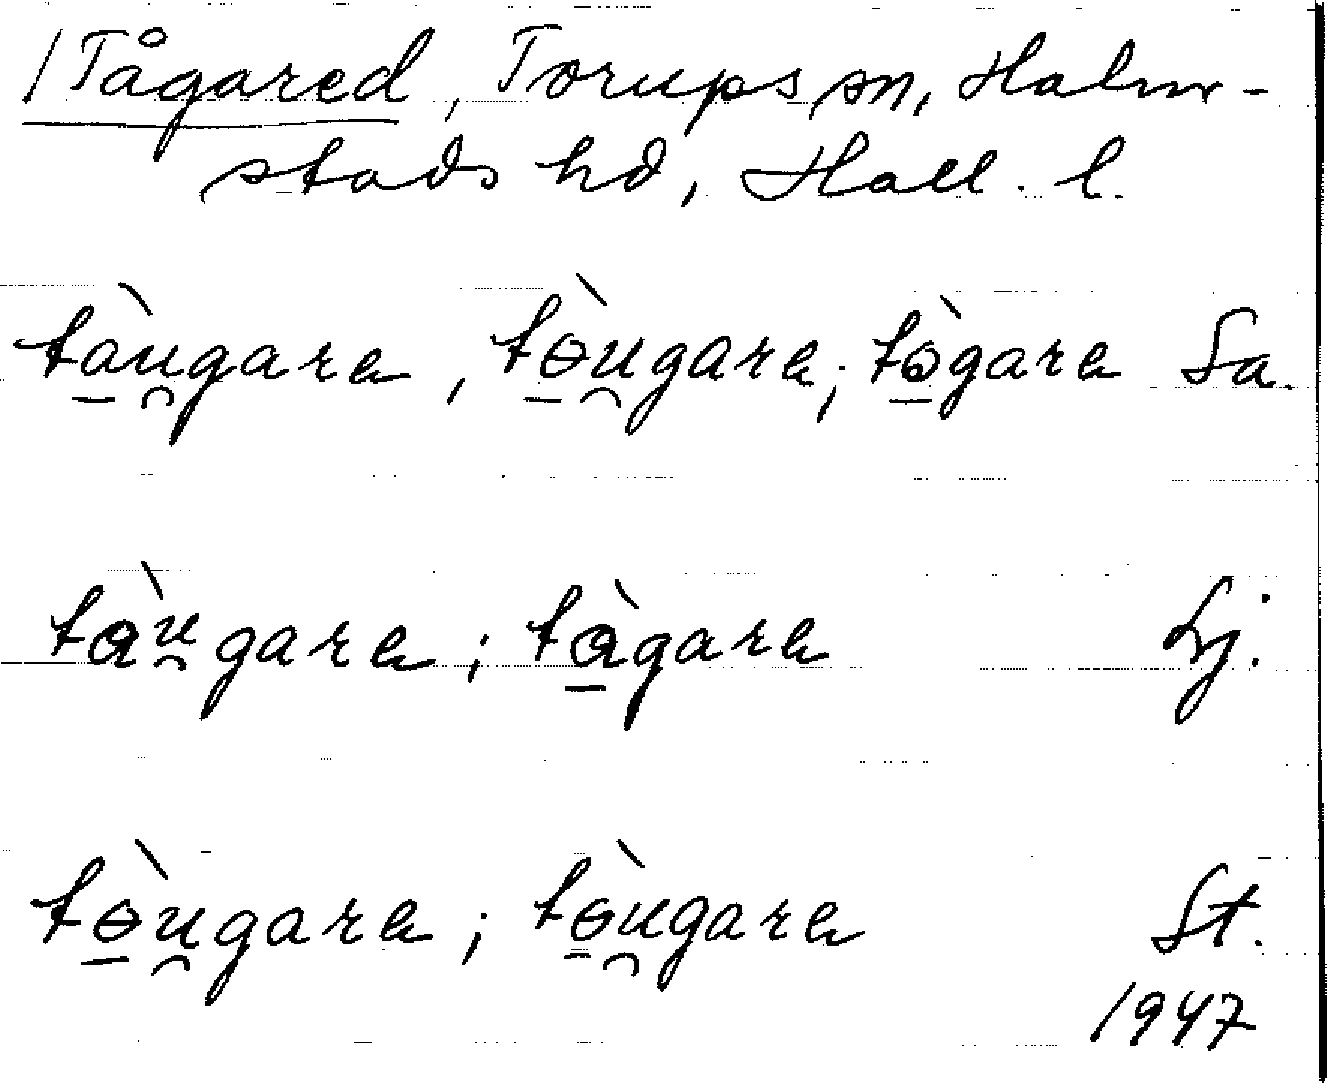 /Tågared, Torups sn, Halm-
stads hd, Hall. l.
ta̱ù̯gare, tɵ̱ù̯gare; tɔ̱̀gare Sa.
tɑù̯gare; tɑ̱̀gare Lj.
tɵ̱ù̯gare; tɵ̱ù̯gare St.
1947